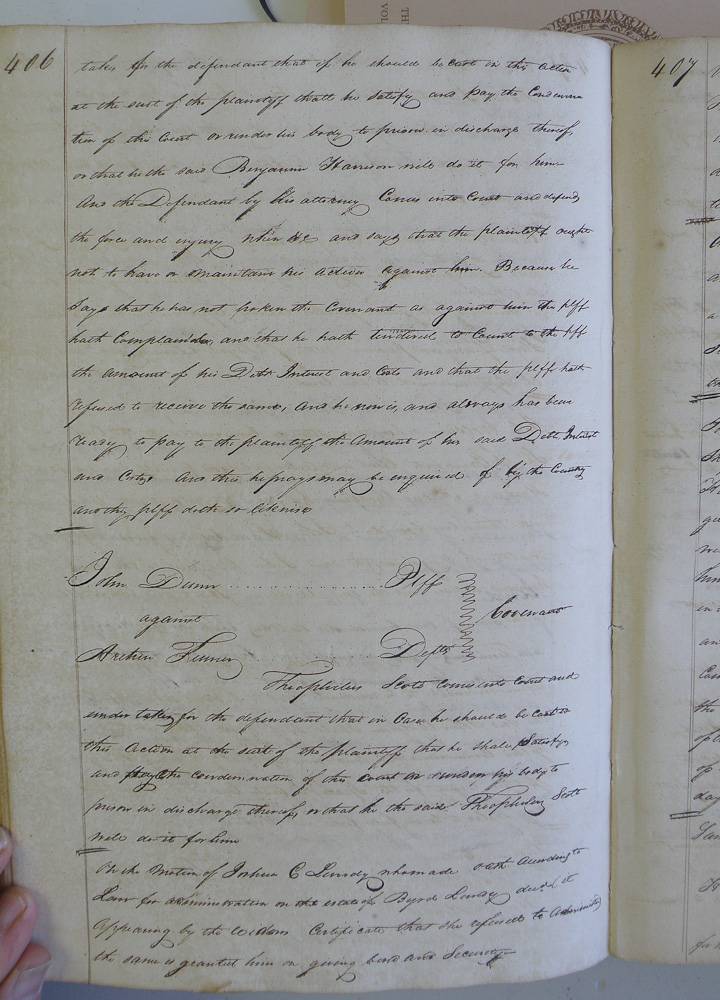 406
takes for the defendant that if he should be cast in this action
at the suit of the plaintiff shall he satisfy and pay the Condemna
tion of this Court or render his body to prison in discharge thereof,
or that he the said Benjamin Harrison will do it for him
And the Defendant by his attorney Comes into Court and defends
the force and injury when &c and says that the plaintiff ought
not to have or maintain his action against him. Because he
says that he has not broken the Covenant as against him the plff
hath Complained, and that he hath tendered to Count to the plff
the amount of his Debt Interest and Costs and that the plff hath
refused to receive the same, And he now is, and always has been
ready to pay to the plaintiff the Amount of his said Debt Interest
and Costs And this he prays may be enquired of by the Country
and the plff doth so likewise
John Dunn Plff
against Covenant
Deft
Theophilus Scott Comes into Court and
undertakes for the dependant that in Case he should be Cast in
this Action at the suit of the plaintiff that he shall Satisfy
and pay the condemnation of this court or render his body to
prison in discharge thereof, or that he the said Theophilus Scott
will do it for him
On the Motion of Joshua C who made oath according to
Law for administration on the estate of Byrd decd it
Appearing by the widows Certificate that she refused to Administer
the same is granted him on giving bond and Security
407